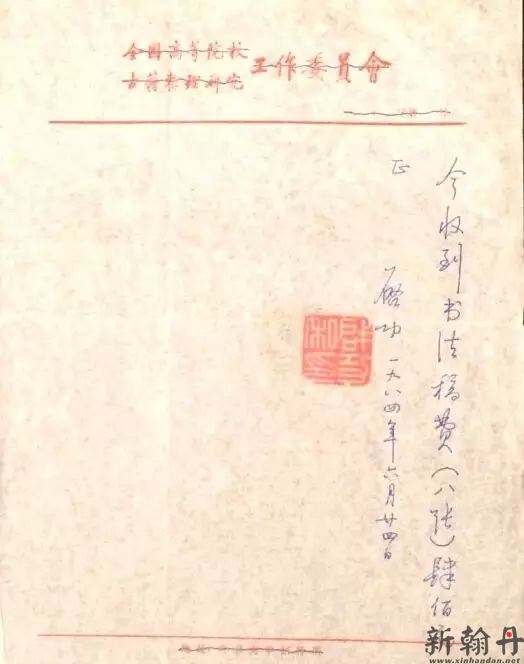 全国高等院校
古籍整理研究
工作委員會
今收到书法稿费(八张)肆佰
正
启功 一九八四年六月廿四日
新翰丹
www.xinhandan.net